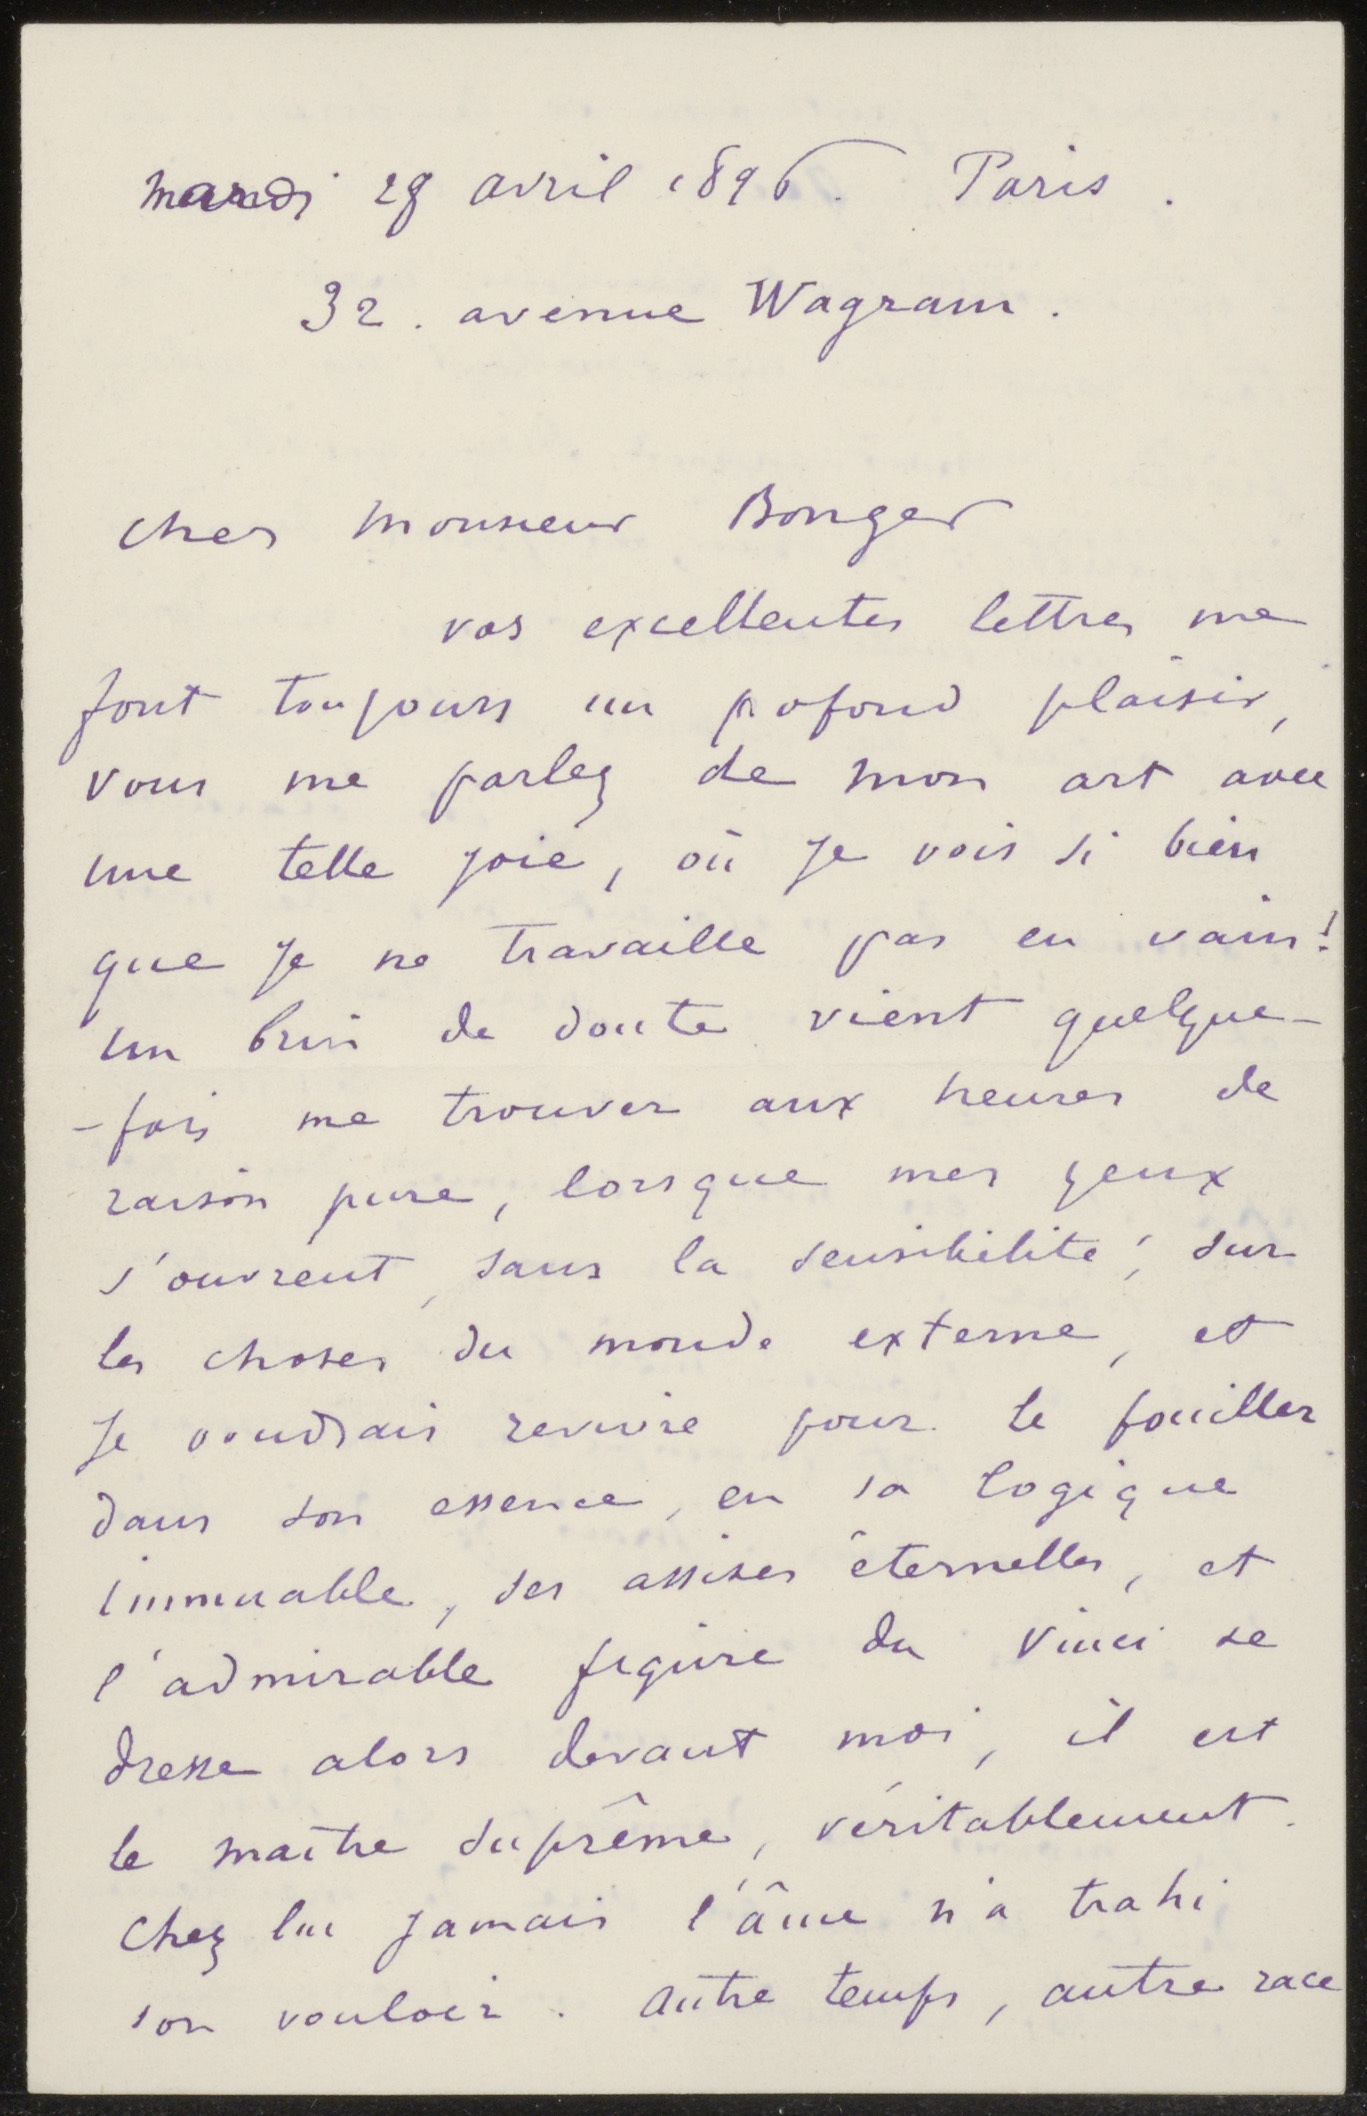 mardi 28 avril 1896. Paris.
32. avenue Wagram.
cher Monsieur Bonger
vos excellentes lettres me
font toujours un profond plaisir,
vous me parlez de mon art avec
une telle joie, où je vois si bien
que je ne travaille pas en vain!
un brin de doute vient quelque-
-fois me trouver aux heures de
raison pure, lorsque mes yeux
s'ouvrent, sans la sensibilité, sur
les choses du monde externe, et
je voudrais revivre pour le fouiller
dans son essence, en sa logique
immuable, ses assises éternelles, et
l'admirable figure du Vinci se
dresse alors devant moi, il est
le maître suprême, véritablement.
Chez lui jamais l'âme n'a trahi
son vouloir. Autre temps, autre race